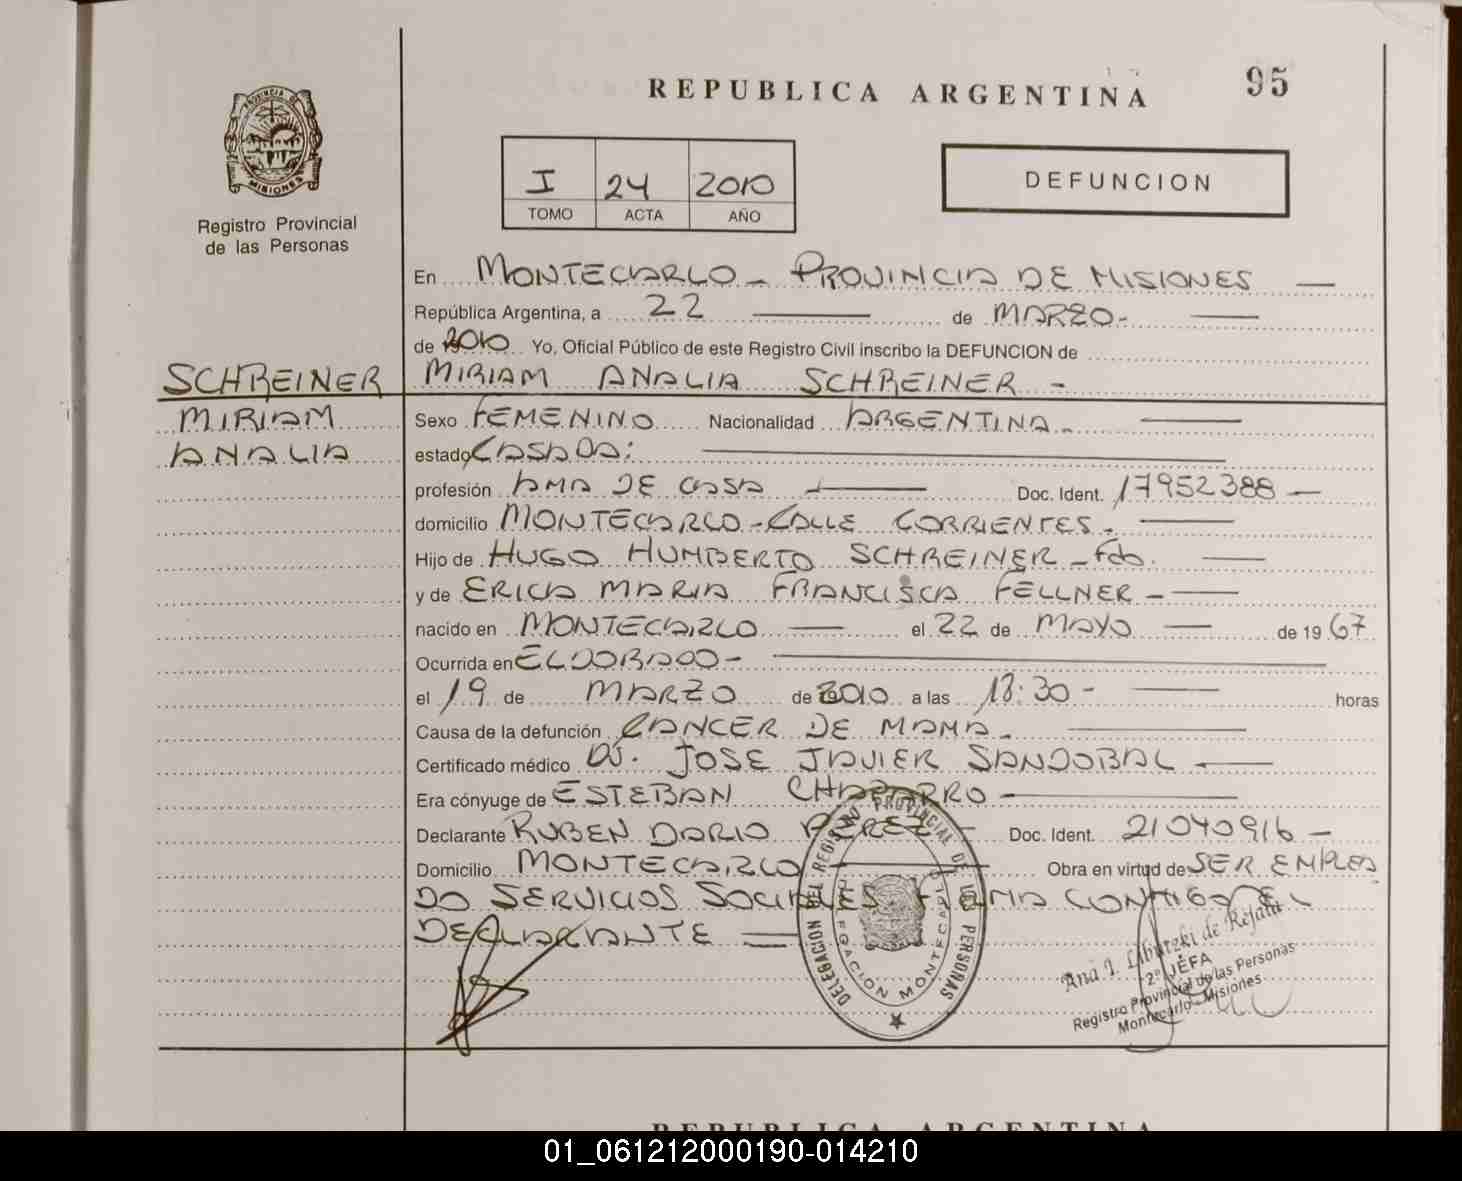 REPUBLICA ARGENTINA
95
PROVINCIA DE
MISIONES
Registro Provincial
de las Personas
I 24 2010
TOMO ACTA AÑO
DEFUNCION
En MONTECARLO - PROVINCIA DE MISIONES
República Argentina, a 22 de MARZO-
de 2010 Yo, Oficial Público de este Registro Civil inscribo la DEFUNCION de
SCHREINER MIRIAM ANALIA SCHREINER -
MIRIAM Sexo FEMENINO Nacionalidad ARGENTINA -
ANALIA estado CASADA:
profesión AMA DE CASA Doc. Ident. 17952388 -
domicilio MONTECARLO - CALLE CORRIENTES -
Hijo de HUGO HUMBERTO SCHREINER - Fdo.
y de ERICA MARIA FRANCISCA FELLNER -
nacido en MONTECARLO el 22 de MAYO de 1967
Ocurrida en ELDORADO -
el 19 de MARZO de 2010 a las 18:30 - horas
Causa de la defunción CANCER DE MAMA -
Certificado médico Dr. JOSE JAVIER SANDOBAL -
Era cónyuge de ESTEBAN CHAPARRO
Declarante RUBEN DARIO PEREZ - Doc. Ident. 21040916 -
Domicilio MONTECARLO Obra en virtud de SER EMPLEA
DO SERVICIOS SOCIALES FIRMA CONMIGO EL
DECLARANTE
DELEGACION DEL REGISTRO PROVINCIAL DE LAS PERSONAS
DELEGACION MONTECARLO
Ana I. de
2º JEFA
Registro Provincial de las Personas
Montecarlo - Misiones
REPUBLICA ARGENTINA
01_061212000190-014210